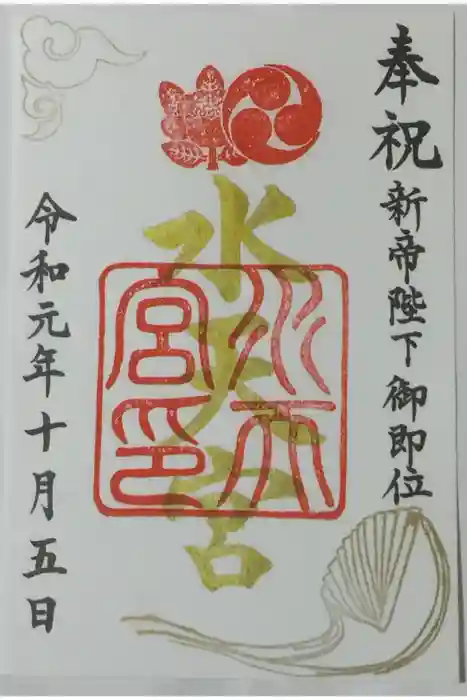 奉祝
新帝陛下御即位
水天宮
水天宮印
令和元年十月五日